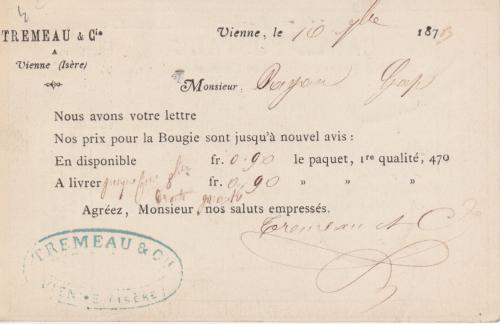 TREMEAU & Cie
A
Vienne (Isère)
Vienne, le 10 187
Monsieur, Payan Gap
Nous avons votre lettre
Nos prix pour la Bougie sont jusqu'à nouvel avis :
En disponible fr. 0.90 le paquet, 1re qualité, 470
A livrer fr. 0.90 » » »
Agréez, Monsieur, nos saluts empressés.
Tremeau & Cie
TREMEAU & Cie
VIENNE (ISÈRE)